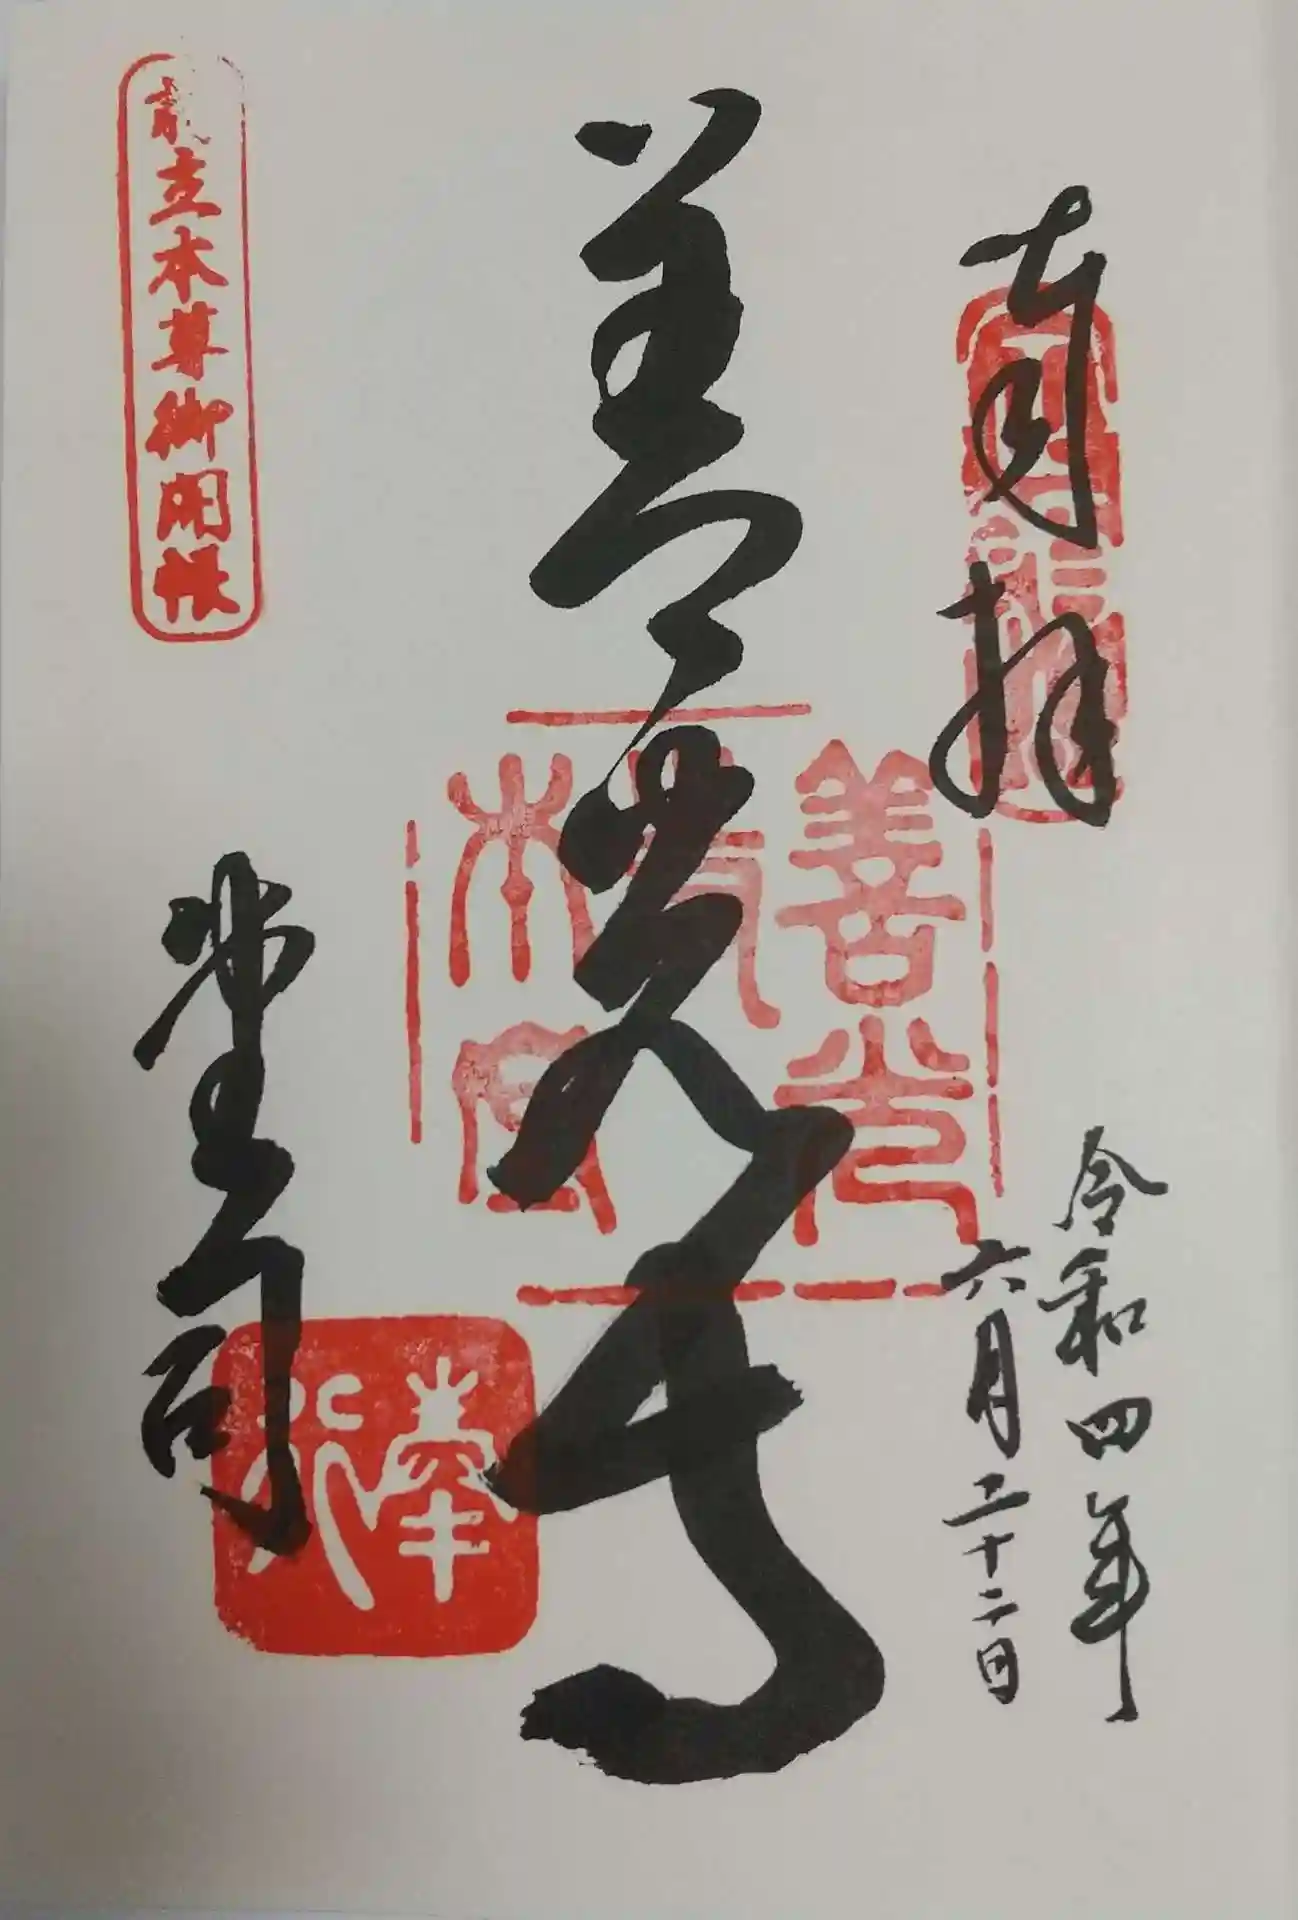 奉拝
令和四年
六月二十二日
善光寺
堂司
前立本尊御開帳
善光
奉行